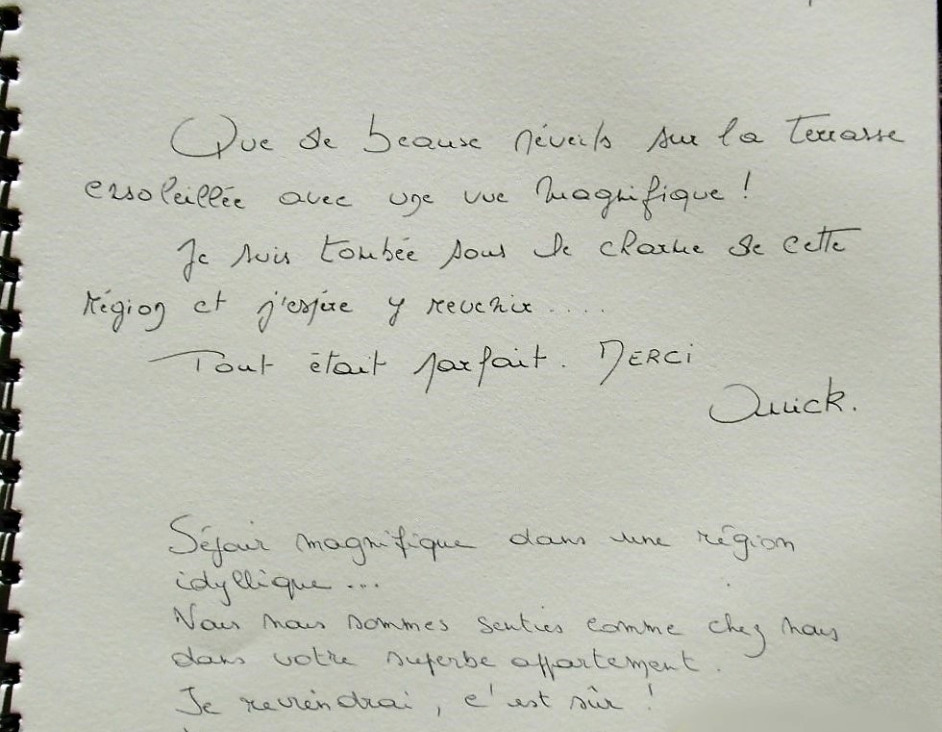 Que de beaux réveils sur la terrasse
ensoleillée avec une vue magnifique !
Je suis tombée sous le charme de cette
région et j'espère y revenir ....
Tout était parfait. MERCI
Séjour magnifique dans une région
idyllique ...
Nous nous sommes senties comme chez nous
dans votre superbe appartement.
Je reviendrai, c'est sûr !